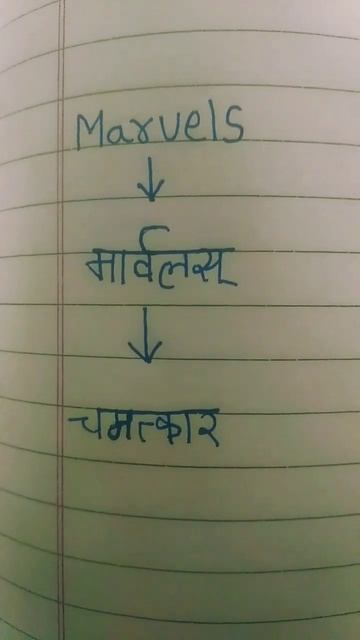 Marvels
↓
मार्वलस्
↓
चमत्कार